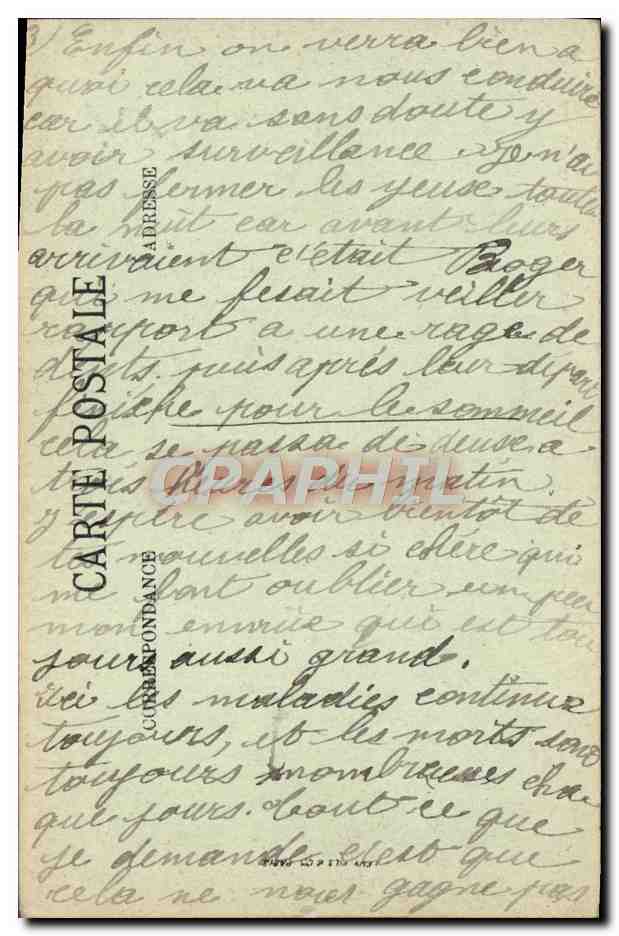 3) Enfin on verra bien a
quoi cela va nous conduire
car il va sans doute y
avoir surveillance je n'ai
pas fermer les yeuse toute
la nuit car avant leurs
arrivaient c'était Roger
qui me fesait veiller
rapport a une rage de
dents. puis après leur départ
fuiche pour le sommeil
cela se passa de deuse a
trois heures du matin.
j'espère avoir bientôt de
tes nouvelles si chère qui
me font oublier un peu
mon ennuie qui est tou
jours aussi grand.
ici les maladies continue
toujours, et les morts sont
toujours nombreuses cha
que jours. tout ce que
je demande c'est que
cela ne nous gagne pas
CARTE POSTALE
CORRESPONDANCE
ADRESSE
CPARAMA